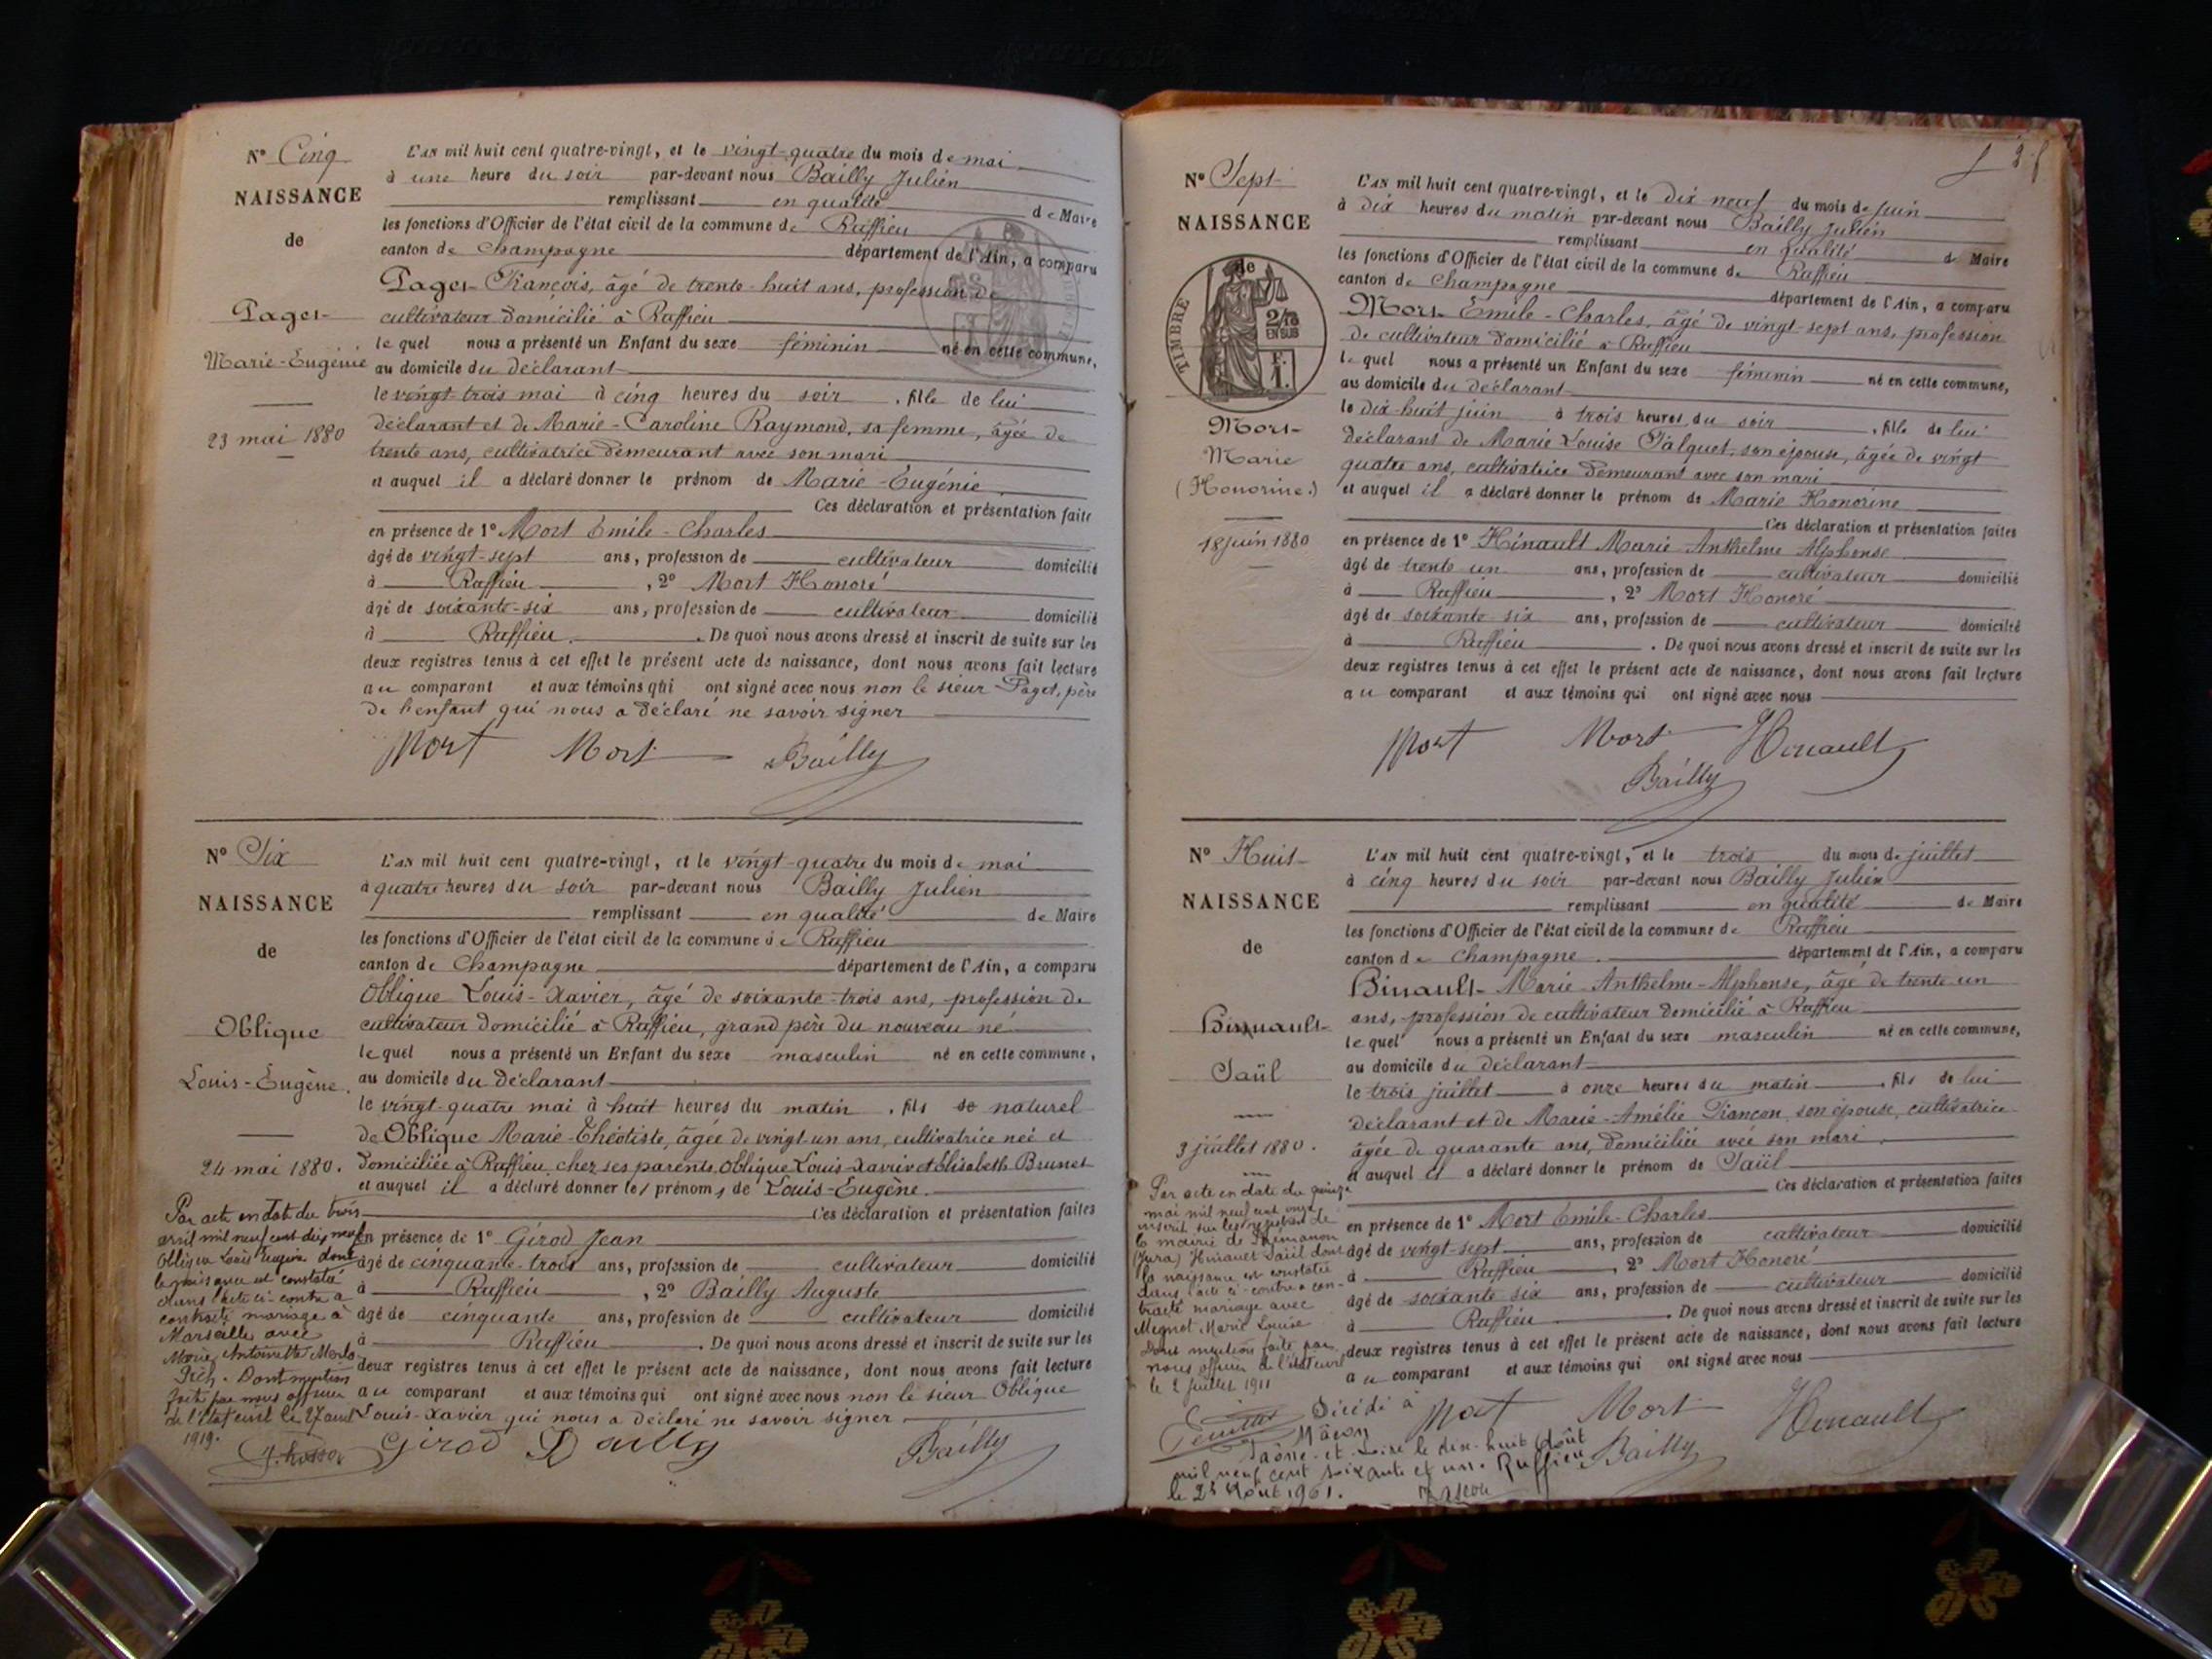 N° Cinq
NAISSANCE
de
Paget
Marie-Eugénie
23 mai 1880
L'an mil huit cent quatre-vingt, et le vingt-quatre du mois de mai
à une heure du soir par-devant nous Bailly Julien
remplissant en qualité de Maire
les fonctions d'Officier de l'état civil de la commune de Ruffieu
canton de Champagne département de l'Ain, a comparu
Paget François, âgé de trente-huit ans, profession de
cultivateur domicilié à Ruffieu
lequel nous a présenté un Enfant du sexe féminin né en cette commune,
au domicile du déclarant
le vingt-trois mai à cinq heures du soir , fille de lui
déclarant et de Marie-Caroline Raymond, sa femme, âgée de
trente ans, cultivatrice demeurant avec son mari
et auquel il a déclaré donner le prénom de Marie-Eugénie
Ces déclaration et présentation faite
en présence de 1° Mort Emile-Charles
âgé de vingt-sept ans, profession de cultivateur domicilié
à Ruffieu , 2° Mort Honoré
âgé de soixante-six ans, profession de cultivateur domicilié
à Ruffieu . De quoi nous avons dressé et inscrit de suite sur les
deux registres tenus à cet effet le présent acte de naissance, dont nous avons fait lecture
au comparant et aux témoins qui ont signé avec nous non le sieur Paget, père
de l'enfant qui nous a déclaré ne savoir signer
Mort Mort Bailly
N° Six
NAISSANCE
de
Oblique
Louis-Eugène.
24 mai 1880.
L'an mil huit cent quatre-vingt, et le vingt-quatre du mois de mai
à quatre heures du soir par-devant nous Bailly Julien
remplissant en qualité de Maire
les fonctions d'Officier de l'état civil de la commune de Ruffieu
canton de Champagne département de l'Ain, a comparu
Oblique Louis-Xavier, âgé de soixante-trois ans, profession de
cultivateur domicilié à Ruffieu, grand père du nouveau né
lequel nous a présenté un Enfant du sexe masculin né en cette commune,
au domicile du déclarant
le vingt-quatre mai à huit heures du matin , fils de naturel
de Oblique Marie-Théotiste, âgée de vingt-un ans, cultivatrice née et
domiciliée à Ruffieu chez ses parents, Oblique Louis-Xavier et Elisabeth Brunet
et auquel il a déclaré donner les prénoms de Louis-Eugène.
Ces déclaration et présentation faites
en présence de 1° Girod Jean
âgé de cinquante-trois ans, profession de cultivateur domicilié
à Ruffieu , 2° Bailly Auguste
âgé de cinquante ans, profession de cultivateur domicilié
à Ruffieu . De quoi nous avons dressé et inscrit de suite sur les
deux registres tenus à cet effet le présent acte de naissance, dont nous avons fait lecture
au comparant et aux témoins qui ont signé avec nous non le sieur Oblique
Louis-Xavier qui nous a déclaré ne savoir signer
Girod Bailly Bailly
Par acte en date du trois
avril mil neuf cent dix neuf
Oblique Louis Eugène dont
la naissance est constatée
dans l'acte ci-contre a
contracté mariage à
Marseille avec
Marie Antoinette
Dont mention
faite par nous officier
de l'état civil le 27 avril
1919.
N° Sept
NAISSANCE
de
TIMBRE
2/10
EN SUS
F.
1.
Mort
Marie
(Honorine.)
18 juin 1880
L'an mil huit cent quatre-vingt, et le dix neuf du mois de juin
à dix heures du matin par-devant nous Bailly Julien
remplissant en qualité de Maire
les fonctions d'Officier de l'état civil de la commune de Ruffieu
canton de Champagne département de l'Ain, a comparu
Mort Emile-Charles, âgé de vingt-sept ans, profession
de cultivateur domicilié à Ruffieu
lequel nous a présenté un Enfant du sexe féminin né en cette commune,
au domicile du déclarant
le dix-huit juin à trois heures du soir , fille de lui
déclarant de Marie Louise Falquet, son épouse, âgée de vingt
quatre ans, cultivatrice demeurant avec son mari
et auquel il a déclaré donner le prénom de Marie Honorine
Ces déclaration et présentation faites
en présence de 1° Hinault Marie Anthelme Alphonse
âgé de trente un ans, profession de cultivateur domicilié
à Ruffieu , 2° Mort Honoré
âgé de soixante six ans, profession de cultivateur domicilié
à Ruffieu . De quoi nous avons dressé et inscrit de suite sur les
deux registres tenus à cet effet le présent acte de naissance, dont nous avons fait lecture
au comparant et aux témoins qui ont signé avec nous
Mort Mort Hinault
Bailly
N° Huit
NAISSANCE
de
Hinault
Saül
3 juillet 1880.
L'an mil huit cent quatre-vingt, et le trois du mois de juillet
à cinq heures du soir par-devant nous Bailly Julien
remplissant en qualité de Maire
les fonctions d'Officier de l'état civil de la commune de Ruffieu
canton de Champagne département de l'Ain, a comparu
Hinault Marie-Anthelme-Alphonse, âgé de trente un
ans, profession de cultivateur domicilié à Ruffieu
lequel nous a présenté un Enfant du sexe masculin né en cette commune,
au domicile du déclarant
le trois juillet à onze heures du matin , fils de lui
déclarant et de Marie-Amélie Tiançon son épouse, cultivatrice
âgée de quarante ans, domiciliée avec son mari
et auquel il a déclaré donner le prénom de Saül
Ces déclaration et présentation faites
en présence de 1° Mort Emile-Charles
âgé de vingt-sept ans, profession de cultivateur domicilié
à Ruffieu , 2° Mort Honoré
âgé de soixante six ans, profession de cultivateur domicilié
à Ruffieu . De quoi nous avons dressé et inscrit de suite sur les
deux registres tenus à cet effet le présent acte de naissance, dont nous avons fait lecture
au comparant et aux témoins qui ont signé avec nous
Mort Mort Hinault
Bailly
Par acte en date du quinze
mai mil neuf cent onze
inscrit sur les registres de
la mairie de Prémanon
(Jura) Hinault Saül dont
la naissance est constatée
dans l'acte ci-contre a con-
tracté mariage avec
Mignot Marie Louise
Dont mention faite par
nous officier de l'état civil
le 2 juillet 1911
Décédé à
Mâcon
Saône-et-Loire le dix-huit août
mil neuf cent soixante et un. Ruffieu
le 25 août 1961.